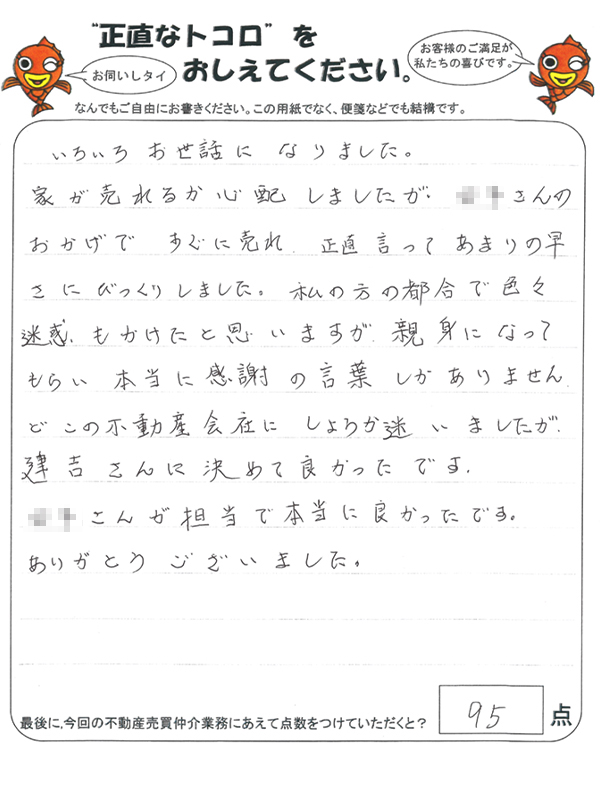 "正直なトコロ"を
おしえてください。
お伺いしタイ
お客様のご満足が
私たちの喜びです。
なんでもご自由にお書きください。この用紙でなく、便箋などでも結構です。
いろいろ お世話に なりました。
家が売れるか心配しましたが、さんの
おかげで すぐに売れ、正直言ってあまりの早
さにびっくりしました。私の方の都合で色々
迷惑、もかけたと思いますが、親身になって
もらい 本当に感謝の言葉しかありません。
どこの不動産会社にしようか迷いましたが、
建吉さんに決めて良かったです。
さんが担当で本当に良かったです。
ありがとうございました。
最後に、今回の不動産売買仲介業務にあえて点数をつけていただくと？
95 点